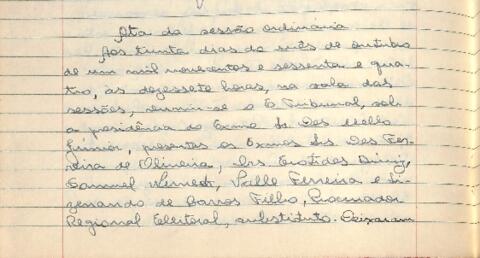 Ata da sessão ordinária
Aos trinta dias do mês de outubro
de um mil novecentos e sessenta e qua-
tro, às dezessete horas, na sala das
sessões, reuniu-se o E Tribunal, sob
a presidência do Exmo Sr. Des Mello
Junior, presentes os Exmos Srs Des Fer-
reira de Oliveira, Drs Erotides Diniz,
Samuel Valle Ferreira e Si-
zenando de Barros Filho, Procurador
Regional Eleitoral, substituto. Deixaram